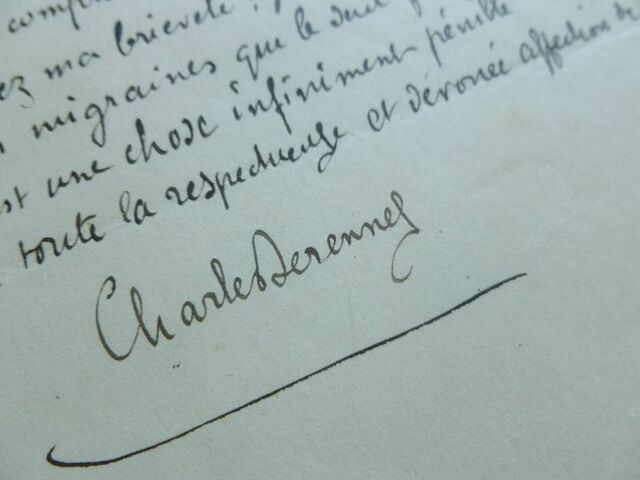 ez ma brieveté !
migraines que le seul
st une chose infiniment pénible
toute la respectueuse et dévouée affection de
Charles Derennes